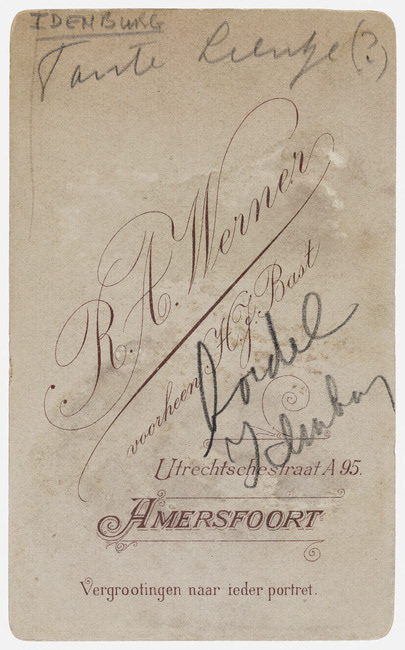 IDENBURG
Tante Lientje (?)
R. A. Werner
voorheen H. J. Bast
Utrechtschestraat A 95.
AMERSFOORT
Vergrootingen naar ieder portret.